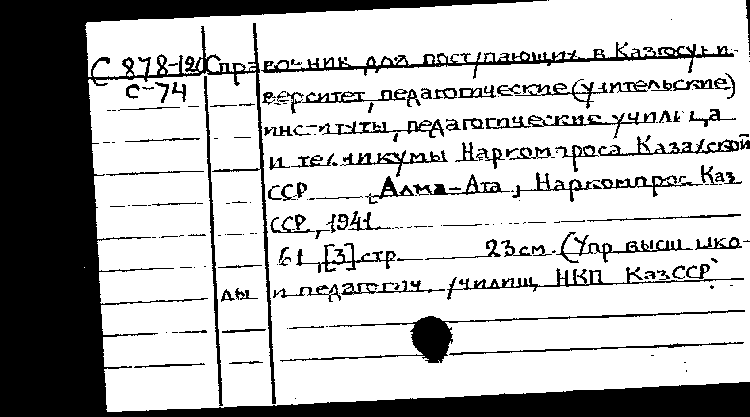 С 878-120 Справочник для поступающих в Казгосуни-
С-74
верситет, педагогические (учительские)
институты, педагогические училища
и техникумы Наркомпроса Казахской
ССР [Алма-Ата, Наркомпрос Каз
ССР, 1941.
61, [3] стр. 23 см. (Упр высш шко-
лы и педагогич. училищ НКП КазССР)